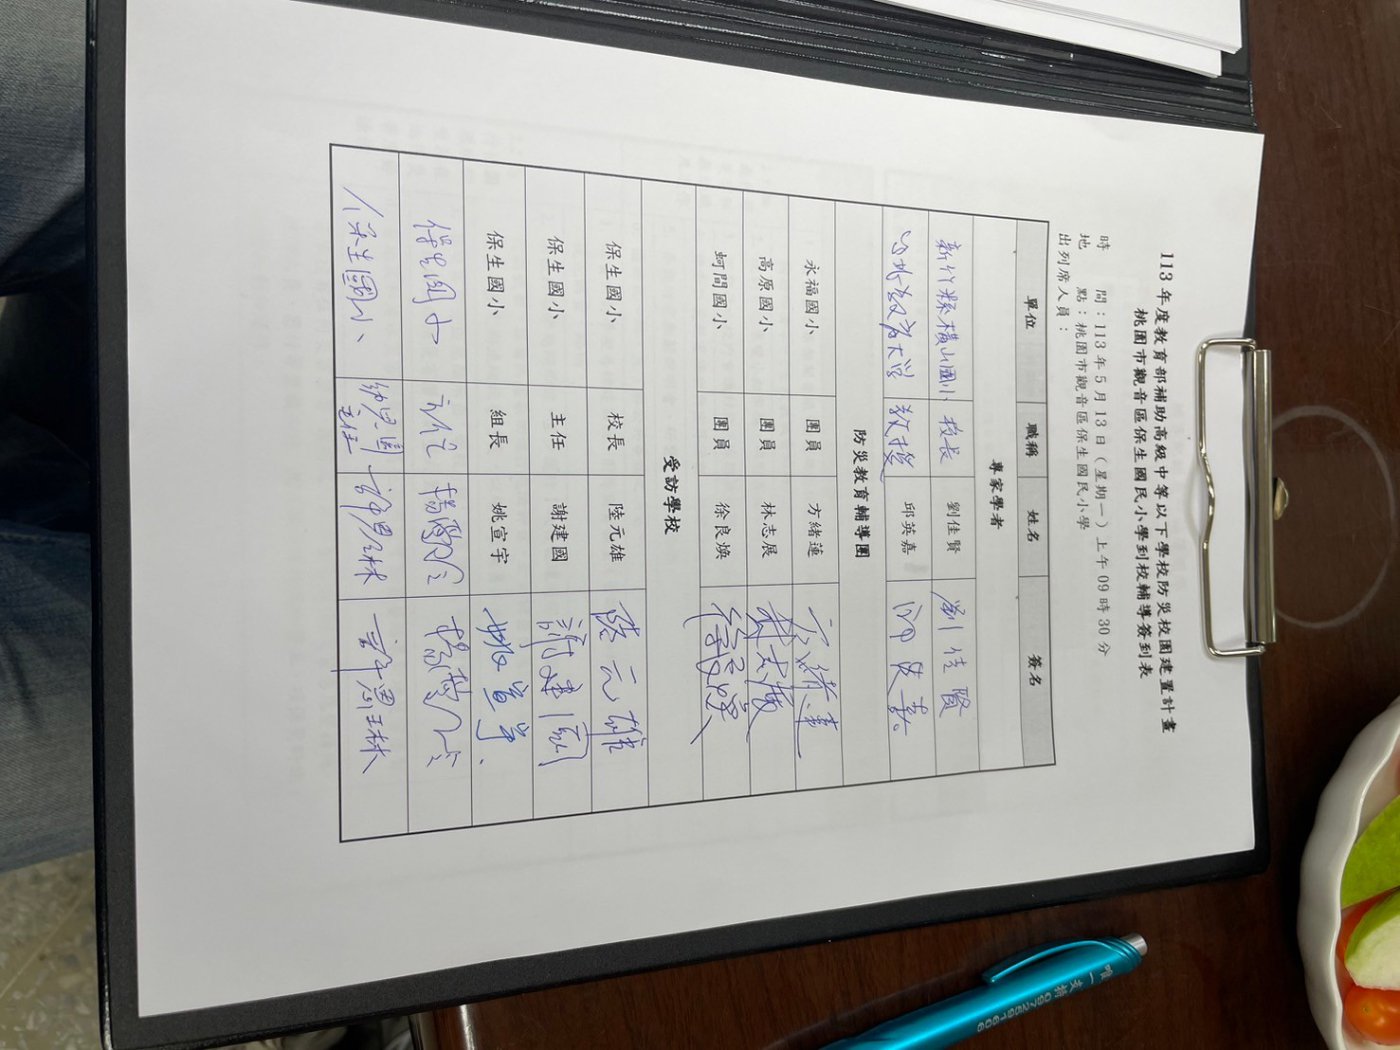 113 年度教育部補助高級中等以下學校防災校園建置計畫
桃園市觀音區保生國民小學到校輔導簽到表
時　　間：113 年 5 月 13 日（星期一）上午 09 時 30 分
地　　點：桃園市觀音區保生國民小學
出列席人員：
單位 職稱 姓名 簽名
專家學者
新竹縣橫山國小 校長 劉佳賢 劉佳賢
台北教育大學 教授 邱英嘉 邱英嘉
防災教育輔導團
永福國小 團員 方緒蓮 方緒蓮
高原國小 團員 林志展 林志展
蚵間國小 團員 徐良煥 徐良煥
受訪學校
保生國小 校長 陸元雄 陸元雄
保生國小 主任 謝建國 謝建國
保生國小 組長 姚宣宇 姚宣宇
保生國小 主任 楊
保生國小 幼兒園主任 許恩琳 許恩琳
唯一支持 0972591606